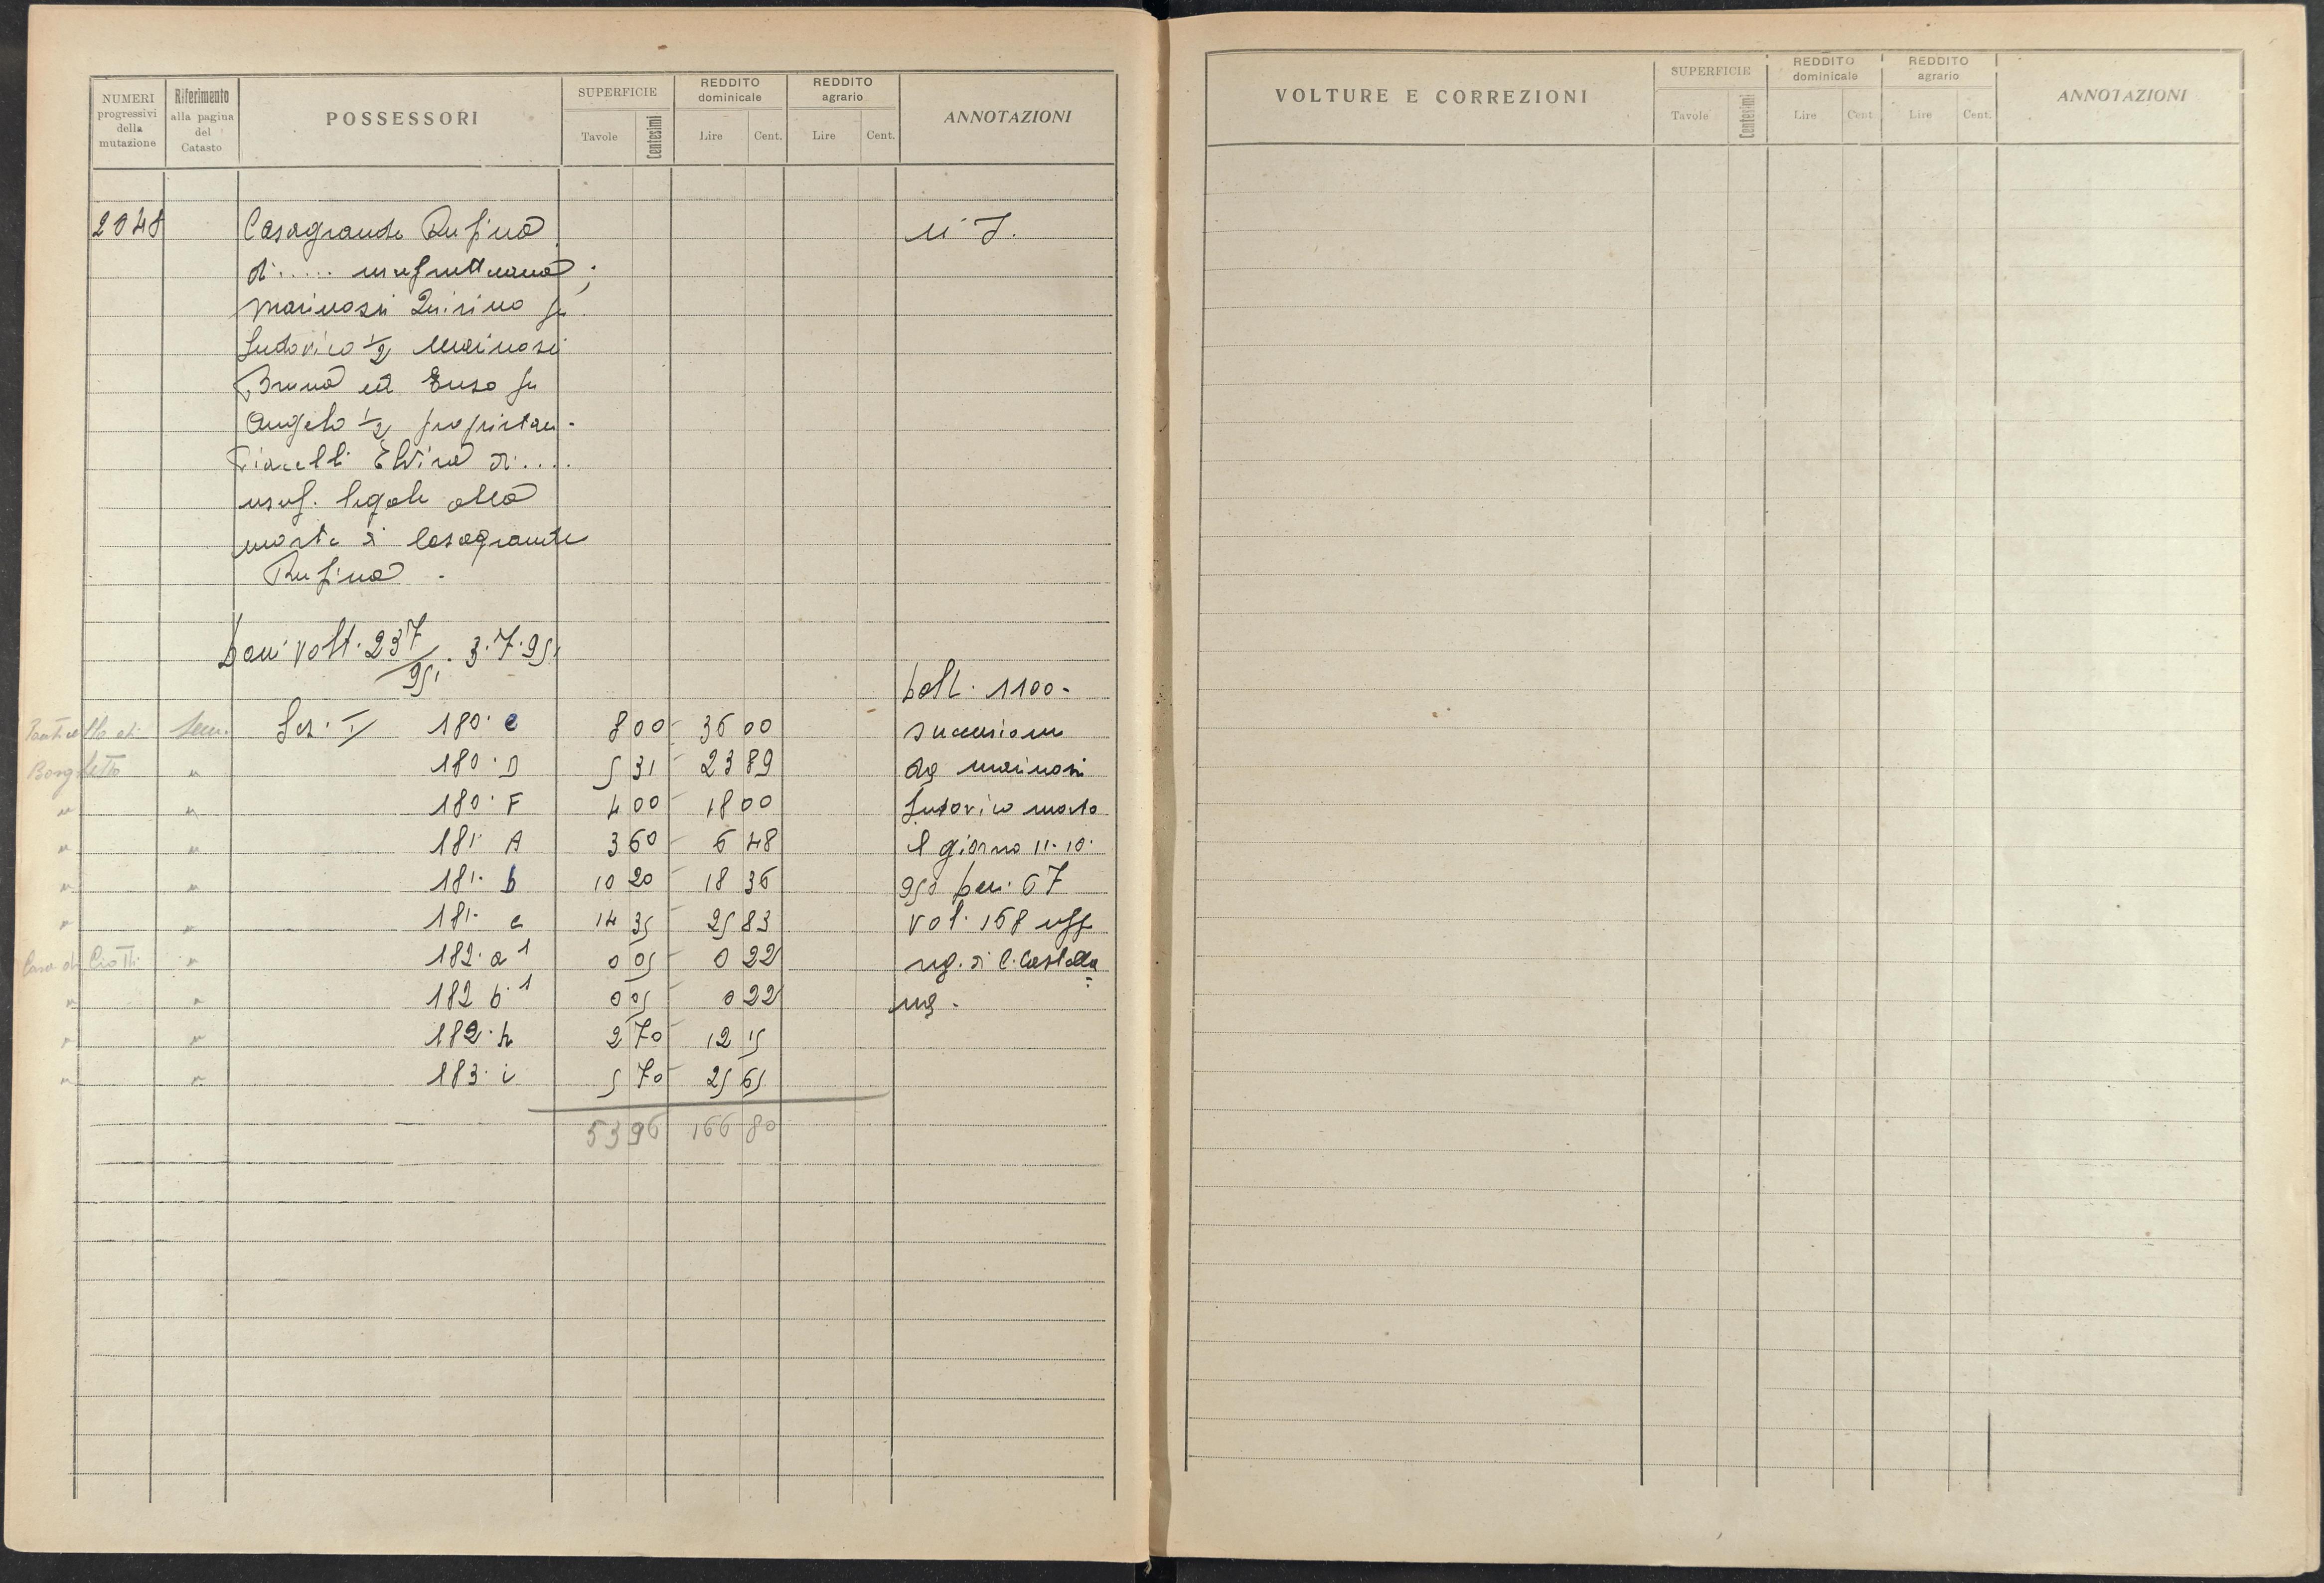 NUMERI progressivi della mutazione | Riferimento alla pagina del Catasto | POSSESSORI | SUPERFICIE Tavole Centesimi | REDDITO dominicale Lire Cent. | REDDITO agrario Lire Cent. | ANNOTAZIONI
2048 Casagrande Rufina
di ..... usufruttuaria ;
Marinosi Quirino fu
Ludovico 1/2 Marinosi
Bruna ed Enso fu
Angelo 1/2 proprietari.
Elvira di ....
usuf. legale alla
morte di Casagrande
Rufina .
volt. 237/951. 3.7.951
1100.
Ponticello di Sem. Sez. I 180. c 8 00 36 00 successione
Borghetto " 180. D 5 31 23 89 da Marinosi
" " 180. F 4 00 18 00 Ludovico morto
" " 181 A 3 60 6 48 il giorno 11.10.
" " 181. b 10 20 18 36 950 67
" " 181. c 14 35 25 83 vol. 168 uff
Casa di Ciotti " 182. a 1 0 05 0 22 reg. di C. Castella
" " 182 b. 1 0 05 0 22 na .
" " 182. h 2 70 12 15
" " 183. i 5 70 25 65
53 96 166 80
VOLTURE E CORREZIONI | SUPERFICIE Tavole Centesimi | REDDITO dominicale Lire Cent. | REDDITO agrario Lire Cent. | ANNOTAZIONI